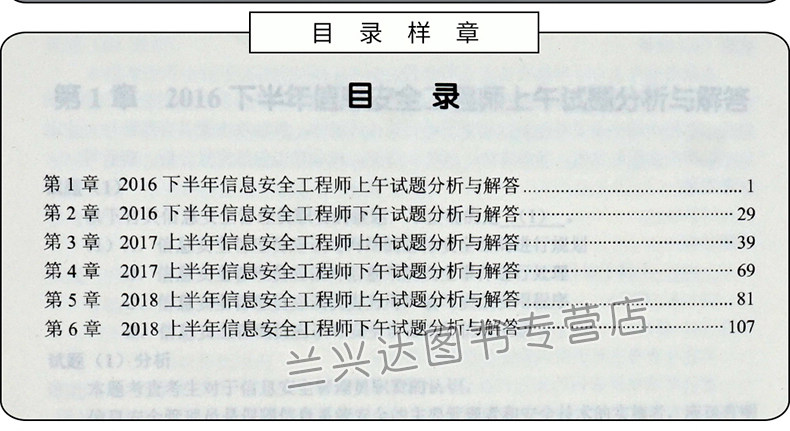 目 录 样 章
目 录
第 1 章 2016 下半年信息安全工程师上午试题分析与解答 1
第 2 章 2016 下半年信息安全工程师下午试题分析与解答 29
第 3 章 2017 上半年信息安全工程师上午试题分析与解答 39
第 4 章 2017 上半年信息安全工程师下午试题分析与解答 69
第 5 章 2018 上半年信息安全工程师上午试题分析与解答 81
第 6 章 2018 上半年信息安全工程师下午试题分析与解答 107
兰兴达图书专营店
试题（1）分析
本题考查考生对于信息安全